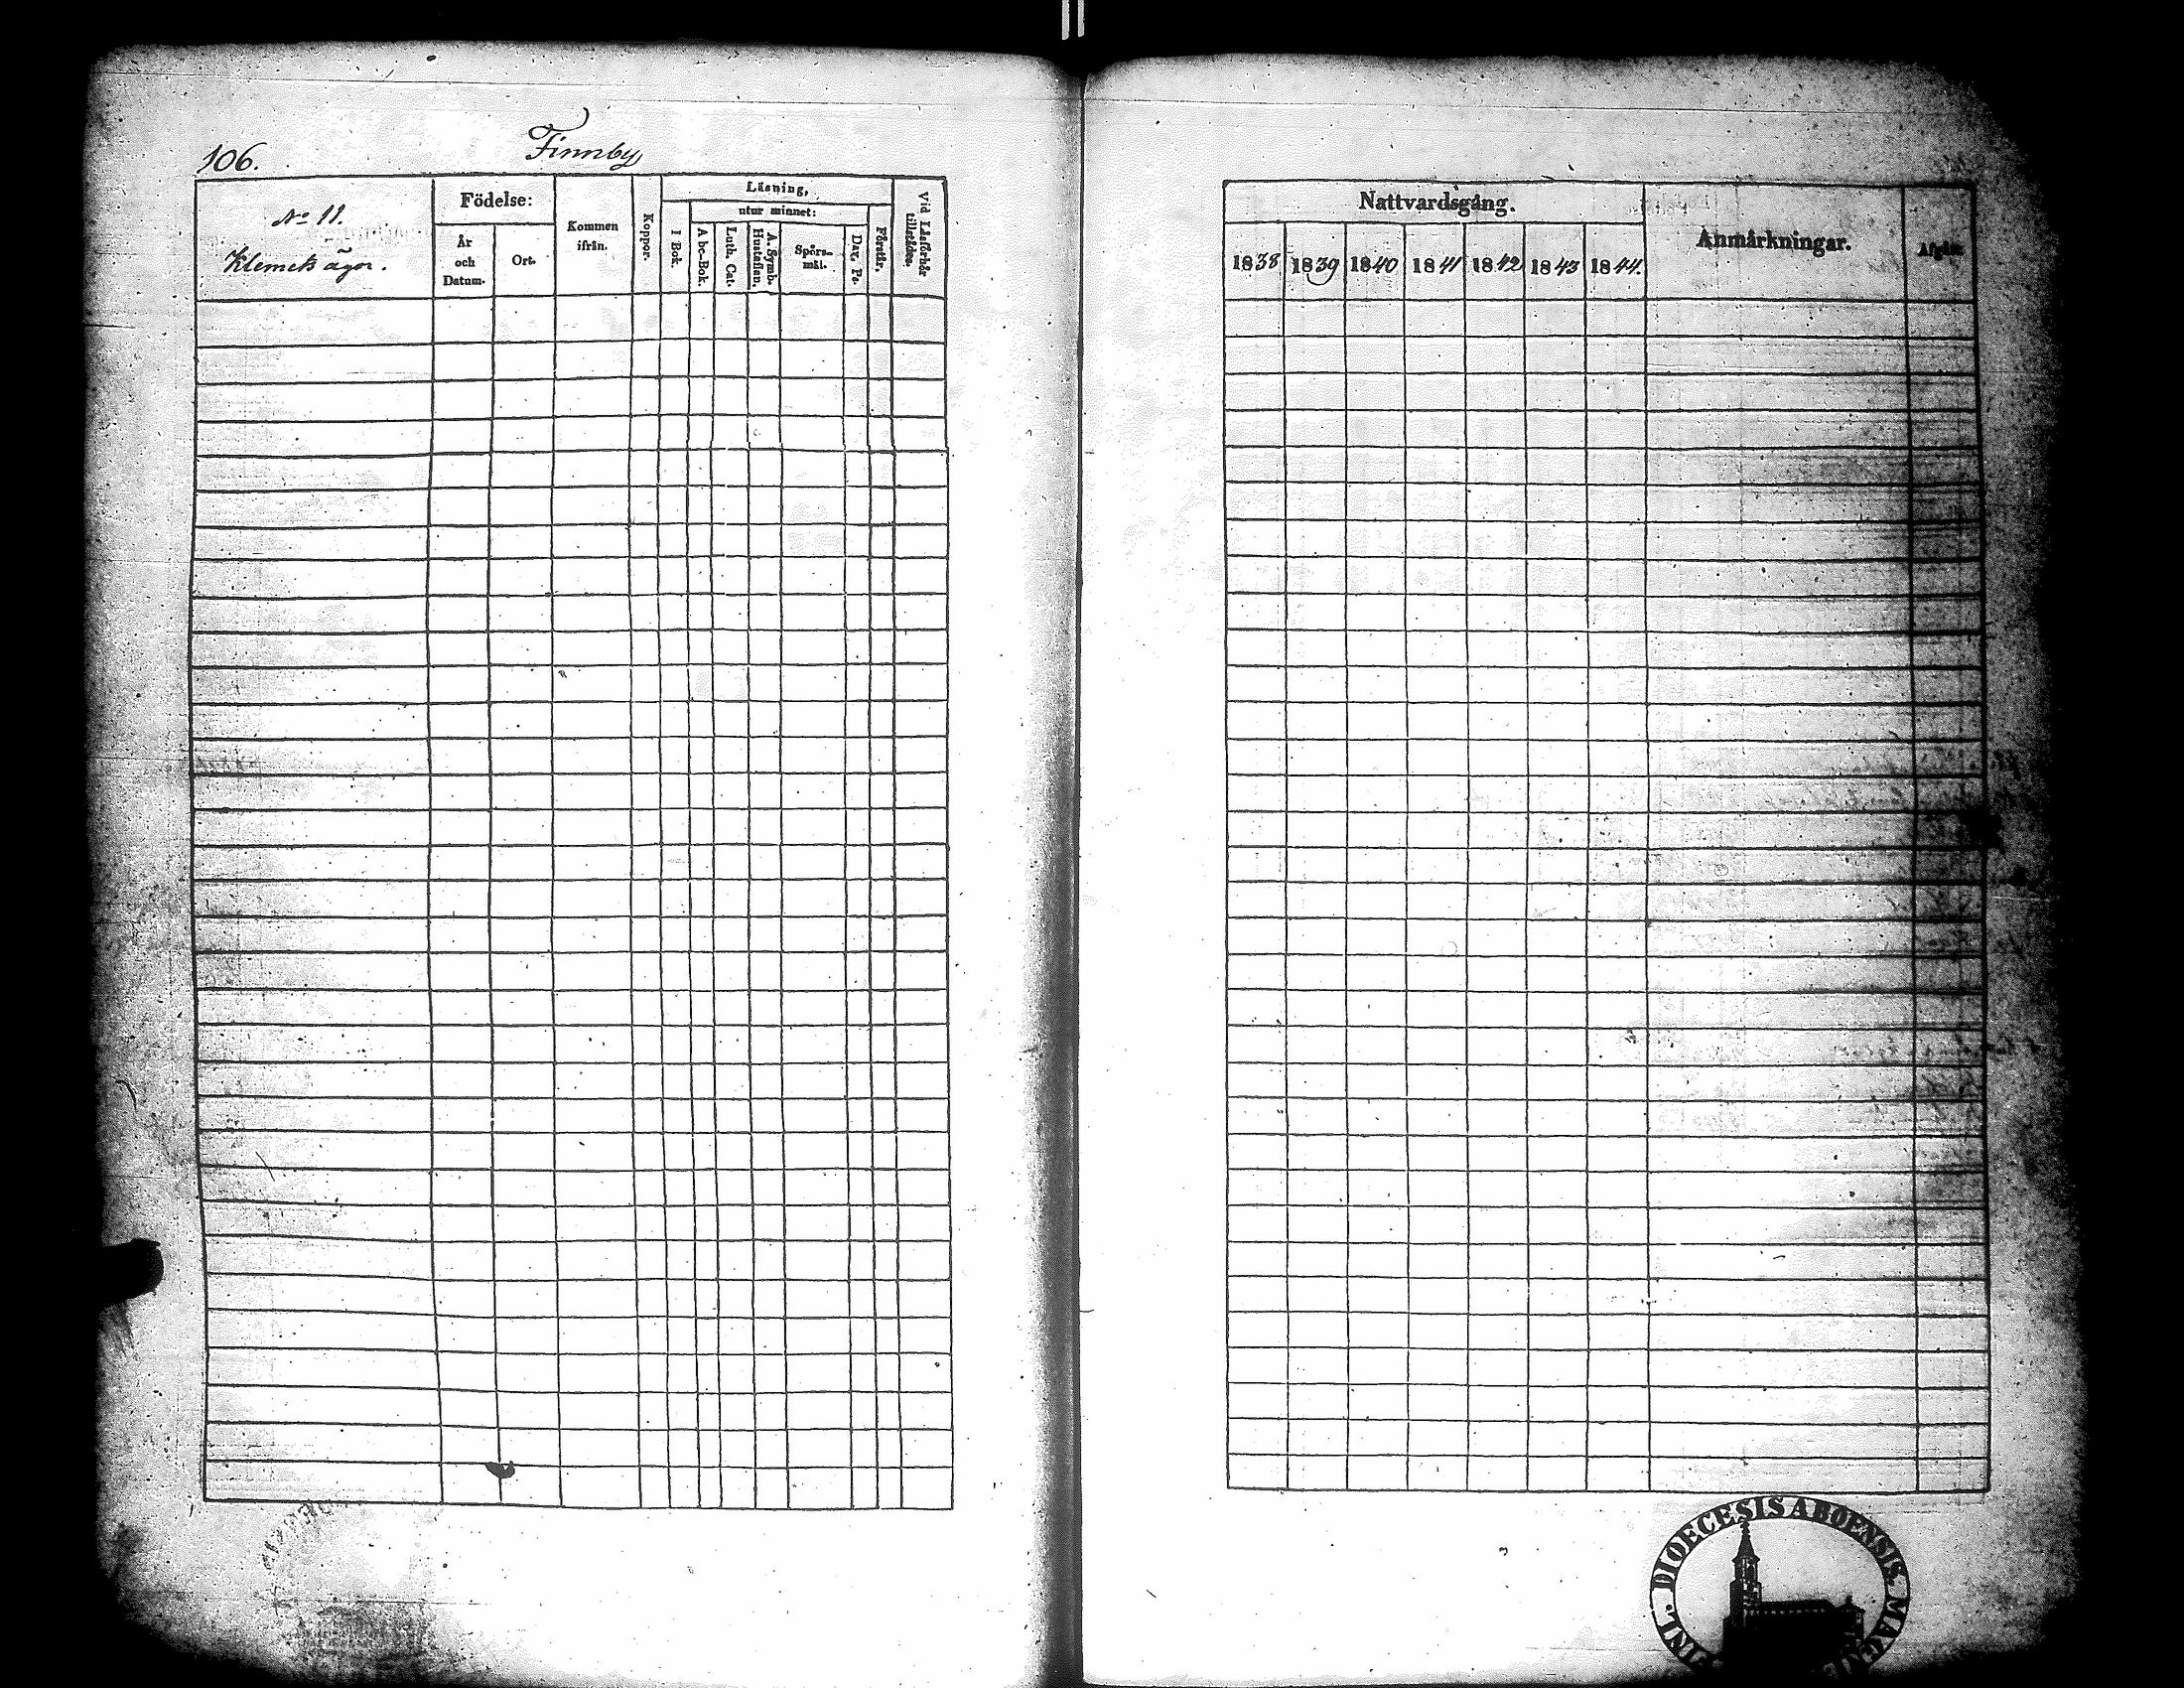 106.
Finnby
No 11.
Klemets ägor.
Födelse:
År
och
Datum.
Ort.
Kommen
ifrån.
Koppor.
Läsning,
utur minnet:
I Bok.
A bc-Bok.
Luth. Cat.
A. Symb.
Hustaflan.
Spörs-
mål.
Dav. Ps.
Förstår.
Vid Läsförhör
tillstädes.
Nattvardsgång.
1838 1839 1840 1841 1842 1843 1844.
Anmärkningar.
DIOECESIS ABOENSIS.